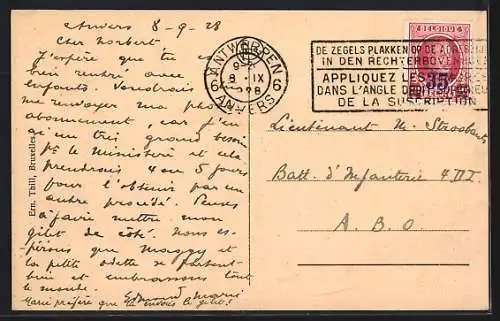 Anvers 8-9-28
Cher Norbert
J'espère que tu es
bien rentré avec
enfants. Voudrais tu
me renvoyer ma photo
abonnement car j'en
ai un très grand besoin
ps le Ministère et cela
prendrais 4 ou 5 jours
pour l'obtenir par un
autre procédé. Penses
à faire mettre mon
gilet de côté. Nous es-
pérons que Maggy et
la petite Odette se portent
bien et embrassons tout
le monde. Edmond Marie
Marie préfère que tu envoies le gilet.
Ern. Thill, Bruxelles.
ANTWERPEN
6 6
9-
8 IX
1928
ANVERS
DE ZEGELS PLAKKEN OP DE
IN DEN RECHTERBOVEN
APPLIQUEZ LES
DANS L'ANGLE
DE LA SUSCRIPTION
BELGIQUE
35
Lieutenant N. Stroobants
Batt. d'Infanterie 4 D.I.
A. B. O.